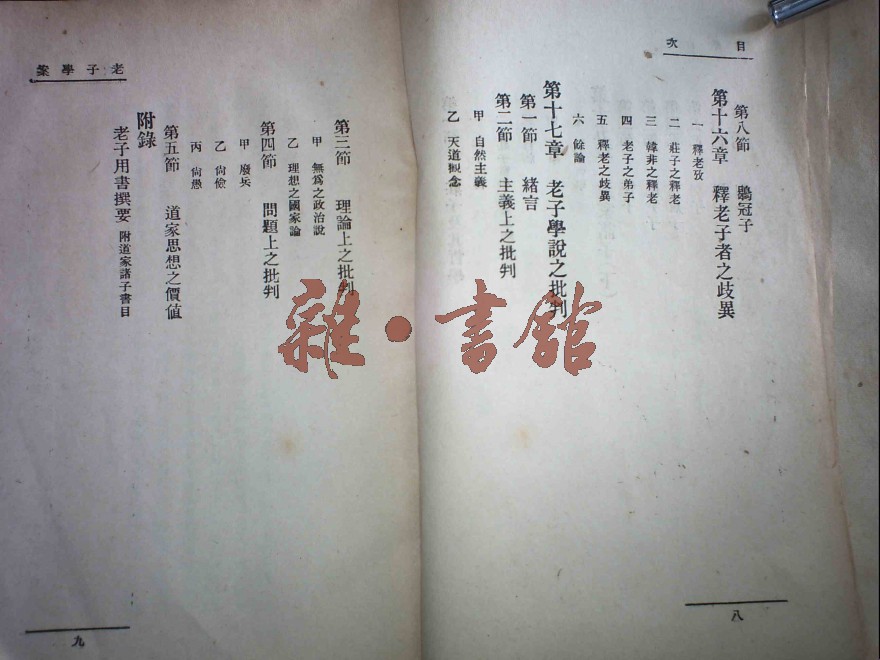 目次
第八節　鶡冠子
第十六章　釋老子者之歧異
一　釋老攷
二　莊子之釋老
三　韓非之釋老
四　老子之弟子
五　釋老之歧異
六　餘論
第十七章　老子學說之批判
第一節　緒言
第二節　主義上之批判
甲　自然主義
乙　天道觀念
八
老子學案
第三節　理論上之批判
甲　無爲之政治說
乙　理想之國家論
第四節　問題上之批判
甲　廢兵
乙　尙儉
丙　尙愚
第五節　道家思想之價値
附錄
老子用書撰要　附道家諸子書目
九
雜·書館